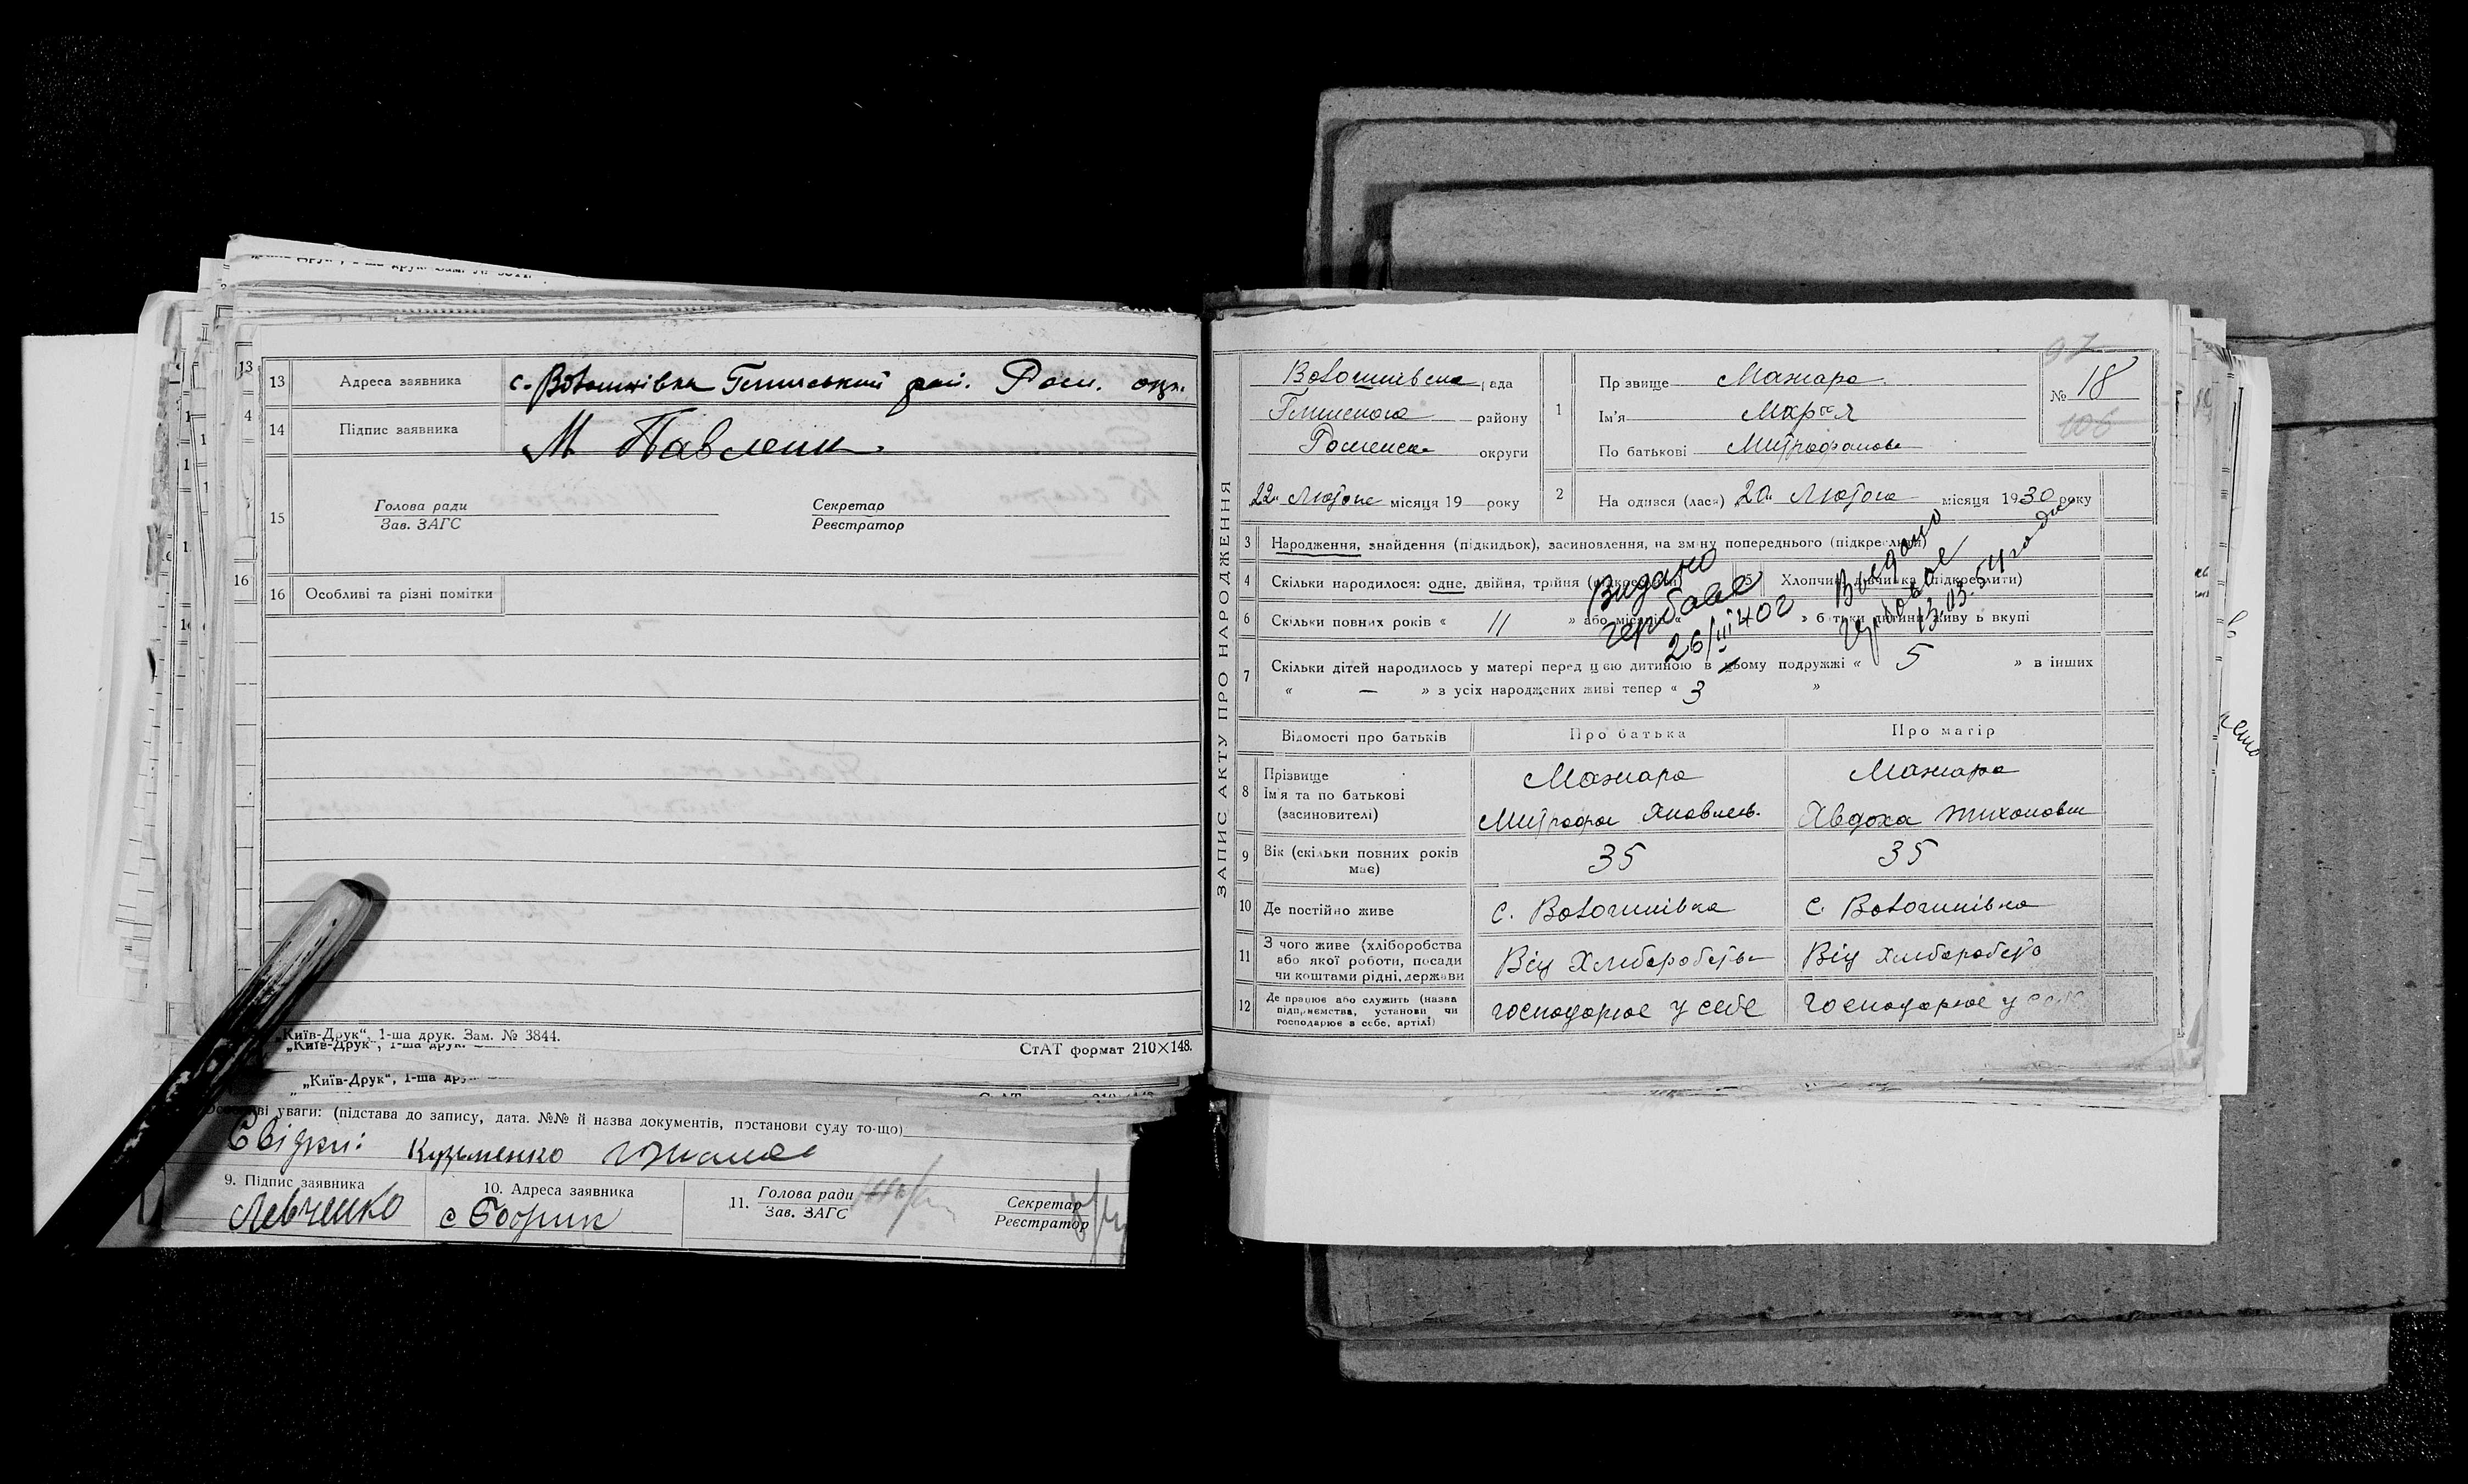 13 Адреса заявника с. Волошнівка Глинський рай. Ром. окр.
14 Підпис заявника М Павленк
15 Голова ради Секретар
Зав. ЗАГС Реєстратор
16 Особливі та різні помітки
„Київ-Друк“, 1-ша друк. Зам. № 3844.
СтАТ формат 210×148.
„Київ-Друк“, 1-ша друк.
„Київ-Друк“, 1-ша
уваги: (підстава до запису, дата. №№ й назва документів, постанови суду то-що)
Свідки: Кузьменко
9. Підпис заявника 10. Адреса заявника 11. Голова ради Секретар
Зав. ЗАГС Реєстратор
Левченко с
ЗАПИС АКТУ ПРО НАРОДЖЕННЯ
97
Волошнівська рада
Глинського району
Роменськ округи
22 Лютого місяця 19 року
1 Прізвище Мажара
Ім'я Марія
По батькові Митрофанова
№ 18
106
2 На одився (лася) „20„ Лютого місяця 1930 року
3 Народження, знайдення (підкидьок), засиновлення, на зміну попереднього (підкреслити)
4 Скільки народилося: одне, двійня, трійня (підкреслити)
5 Хлопчик, дівчинка (підкреслити)
6 Скільки повних років « 11 » або місяців « » батьки дитини живуть вкупі
Видано
гербове
26/III 40г
Выдано
гербовое
13.03.54 года
7 Скільки дітей народилось у матері перед цією дитиною в цьому подружжі « 5 » в інших
« — » з усіх народжених живі тепер « 3 »
Відомості про батьків Про батька Про матір
8 Прізвище Мажара Мажара
Ім'я та по батькові
(засновителі) Митрофан Яковлев. Явдоха Тихоновн
9 Вік (скільки повних років має) 35 35
10 Де постійно живе с. Волошнівка с Волошнівка
11 З чого живе (хліборобства
або якої роботи, посади
чи коштами рідні, держави Від Хліборобства Від Хліборобств
12 Де працює або служить (назва
підприємства, установи чи
господарює в себе, артілі) господарює у себе господарює у себе